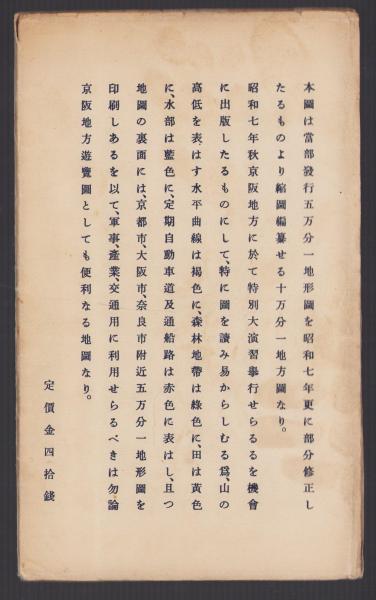 本圖は當部發行五万分一地形圖を昭和七年更に部分修正し
たるものより縮圖編纂せる十万分一地方圖なり。
昭和七年秋京阪地方に於て特別大演習擧行せらるるを機會
に出版したるものにして、特に圖を讀み易からしむる爲、山の
高低を表はす水平曲線は褐色に、森林地帶は綠色に、田は黃色
に、水部は藍色に、定期自動車道及通船路は赤色に表はし、且つ
地圖の裏面には、京都市、大阪市、奈良市附近五万分一地形圖を
印刷しあるを以て、軍事、產業、交通用に利用せらるべきは勿論
京阪地方遊覽圖としても便利なる地圖なり。
定價金四拾錢